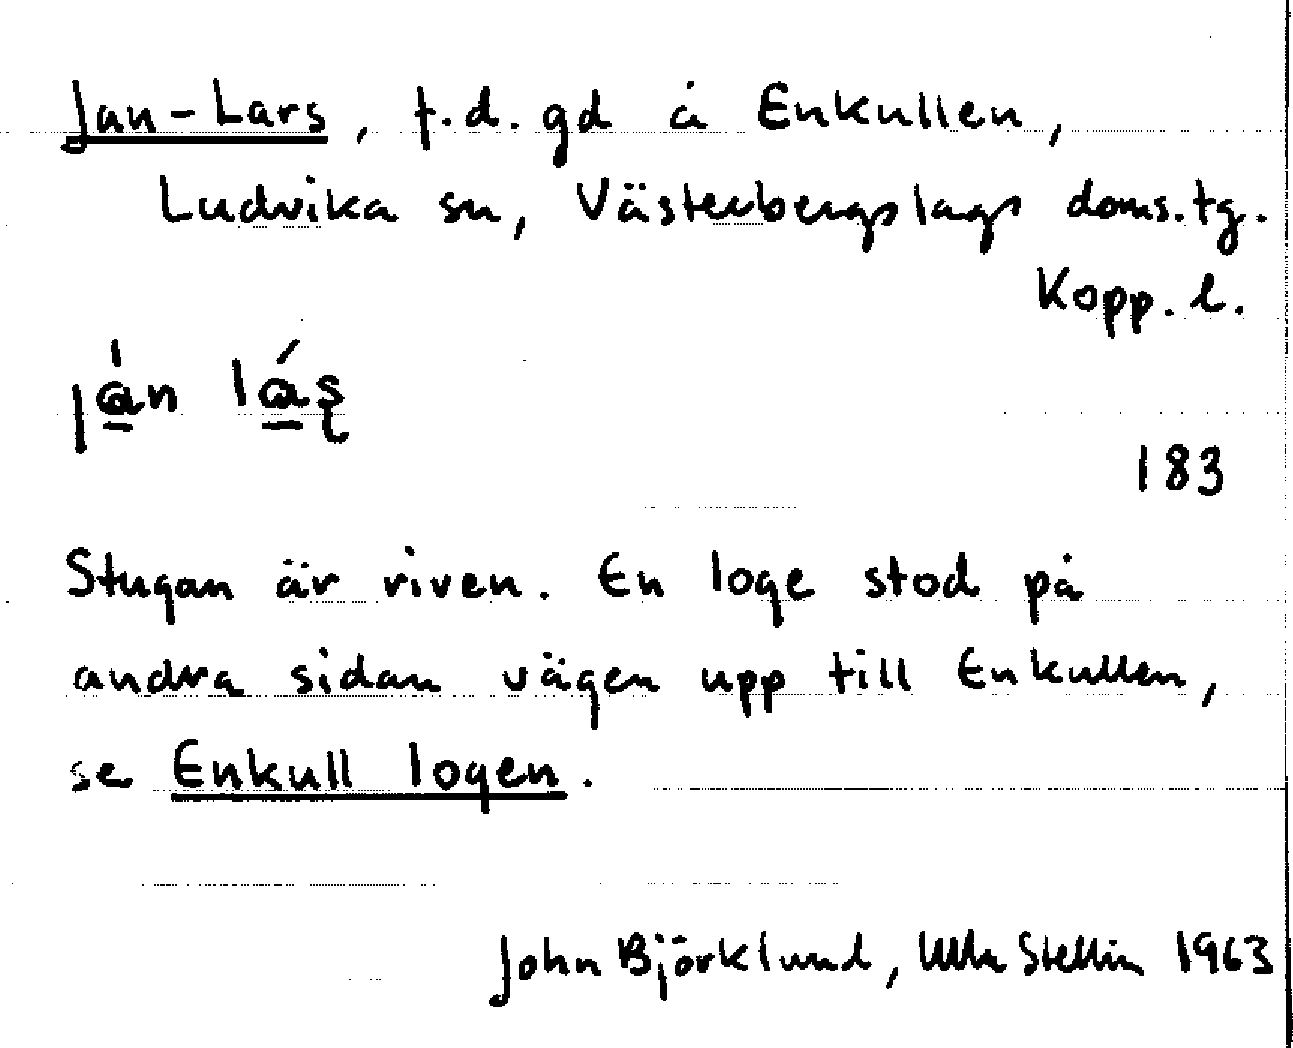 Jan-Lars, f.d. gd å Enkullen,
Ludvika sn, Västerbergslags doms.tg.
Kopp. l.
jàn láş
183
Stugan är riven. En loge stod på
andra sidan vägen upp till Enkullen,
se Enkull logen.
John Björklund, Ulla Stellin 1963